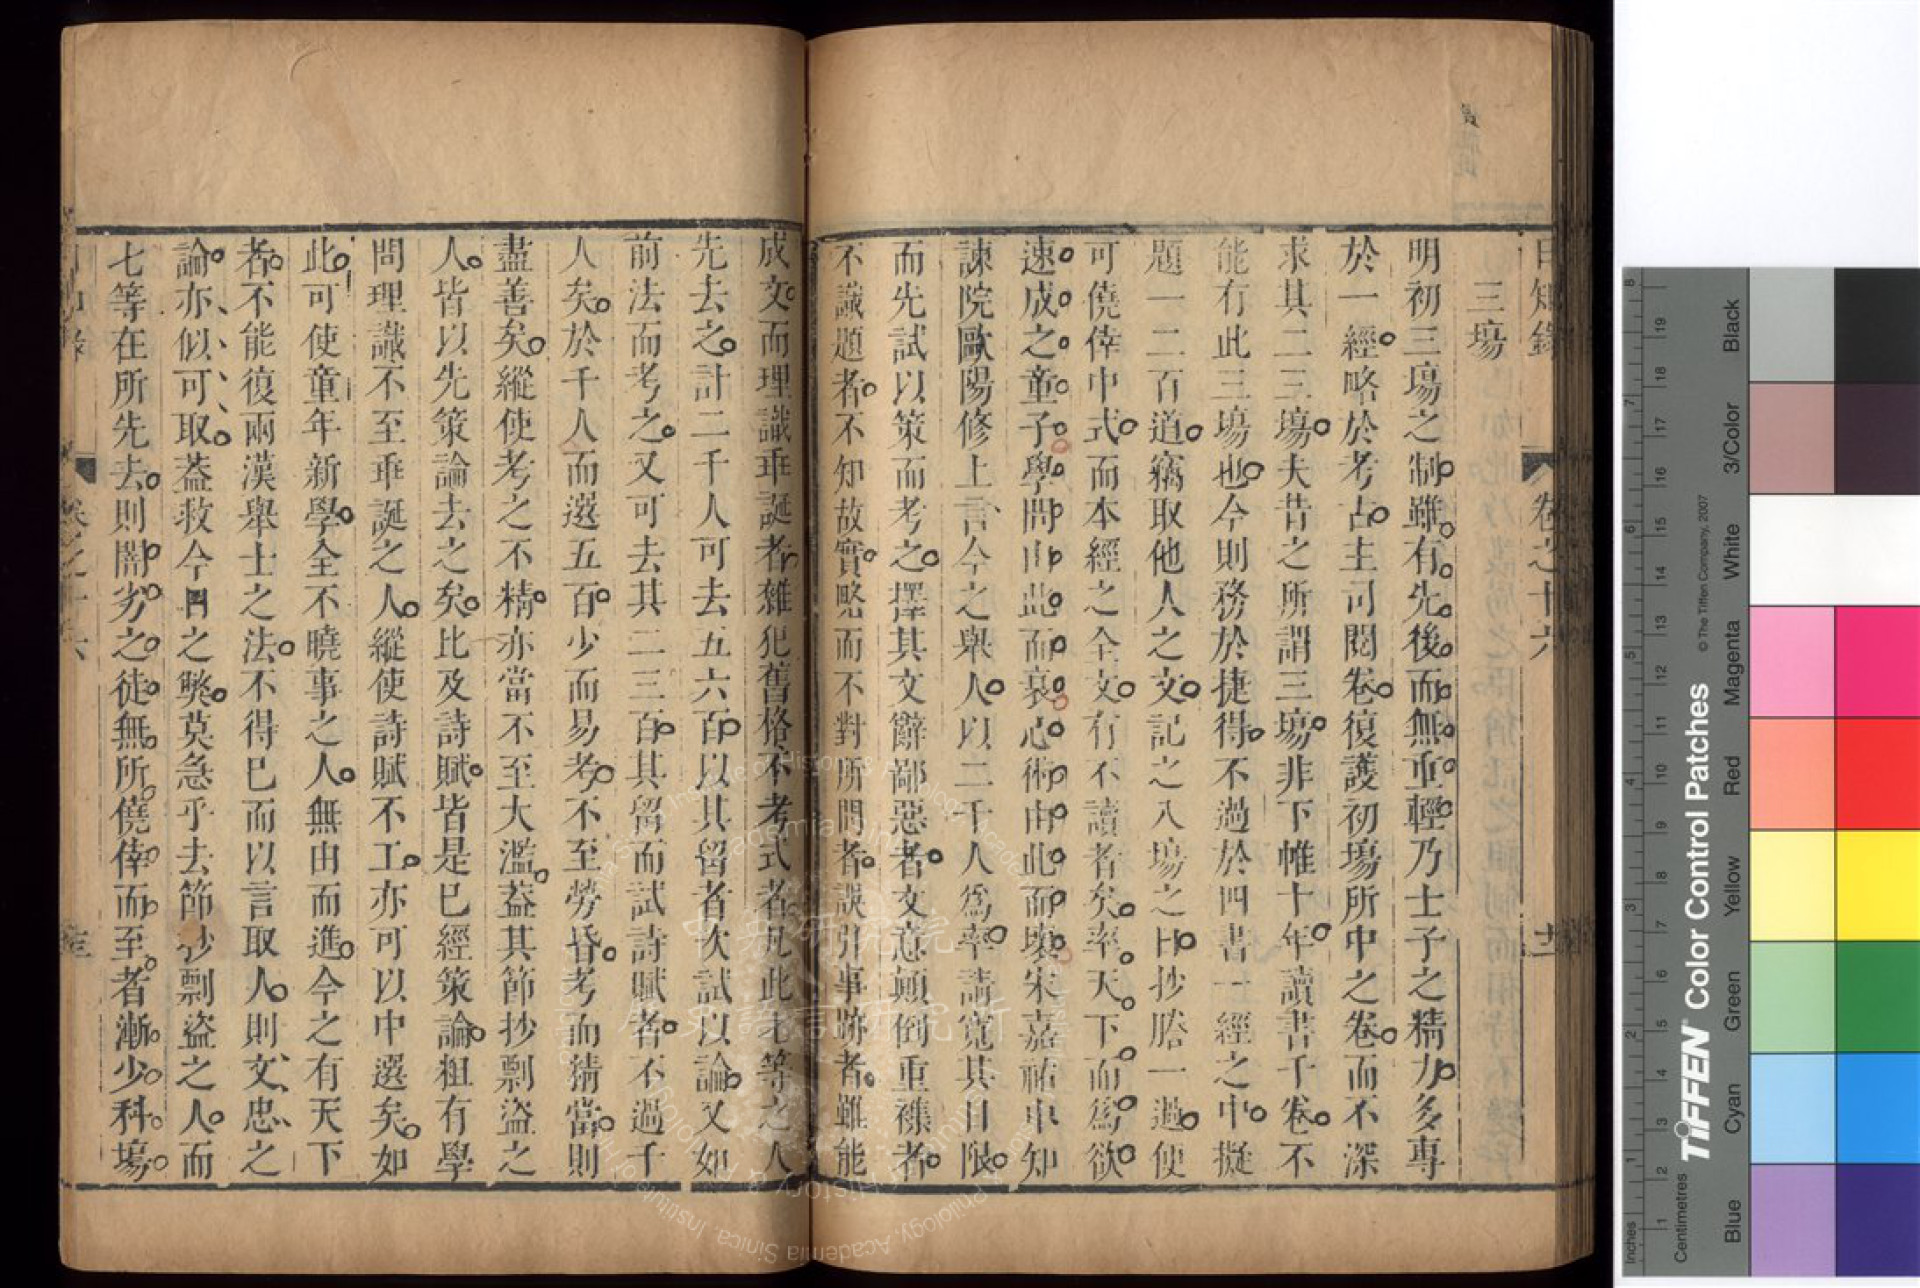 日知錄 卷之十六
三場
明初三場之制雖有先後而無重輕乃士子之精力多專
於一經略於考古主司閱卷復護初場所中之卷而不深
求其二三場夫昔之所謂三場非下帷十年讀書千卷不
能有此三場也今則務於捷得不過於四書一經之中擬
題一二百道竊取他人之文記之入場之日抄謄一過便
可僥倖中式而本經之全文有不讀者矣率天下而爲欲
速成之童子學問由此而衰心術由此而壞宋嘉祐中知
諫院歐陽修上言今之舉人以二千人爲率請寬其日限
而先試以策而考之擇其文辭鄙惡者文意顛倒重襍者
不識題者不知故實略而不對所問者誤引事跡者雖能
成文而理識乖誕者雜犯舊格不考式者凡此七等之人
先去之計二千人可去五六百以其留者次試以論又如
前法而考之又可去其二三百其留而試詩賦者不過千
人矣於千人而選五百少而易考不至勞昏考而精當則
盡善矣縱使考之不精亦當不至大濫葢其節抄剽盜之
人皆以先策論去之矣比及詩賦皆是已經策論粗有學
問理識不至乖誕之人縱使詩賦不工亦可以中選矣如
此可使童年新學全不曉事之人無由而進今之有天下
者不能復兩漢舉士之法不得已而以言取人則文忠之
論亦似可取葢救今日之獘莫急乎去節抄剽盜之人而
七等在所先去則闇劣之徒無所僥倖而至者漸少科場
Institute of History & Philology, Academia Sinica
中央研究院
歷史語言研究所
Black
3/Color
White
Magenta
Red
Yellow
Green
Cyan
Blue
© The Tiffen Company, 2007
TIFFEN Color Control Patches
Centimetres
Inches